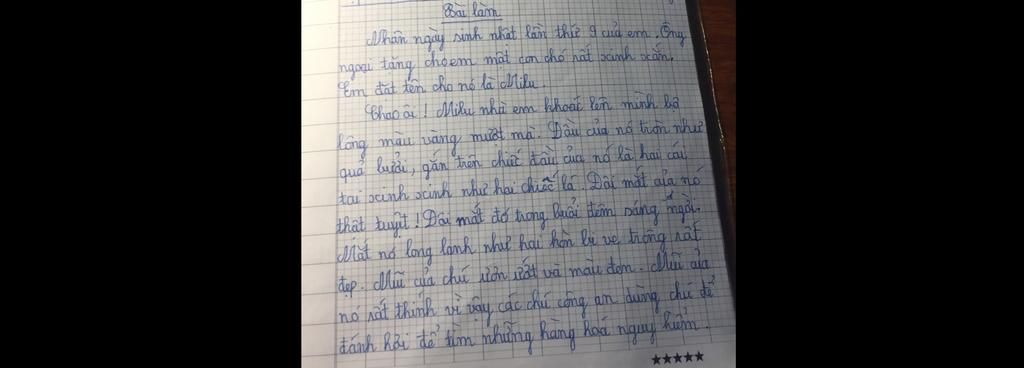 Bài làm
Nhân ngày sinh nhật lần thứ 9 của em. Ông
ngoại tặng cho em một con chó rất xinh xắn.
Em đặt tên cho nó là Milu.
Chao ôi! Milu nhà em khoác lên mình bộ
lông màu vàng mượt mà. Đầu của nó tròn như
quả bưởi, gắn trên chiếc đầu của nó là hai cái
tai xinh xinh như hai chiếc lá. Đôi mắt của nó
thật tuyệt! Đôi mắt đó trong buổi đêm sáng ngời.
Mắt nó long lanh như hai hòn bi ve trông rất
đẹp. Mũi của chú ươn ướt và màu đen. Mũi của
nó rất thính vì vậy các chú công an dùng chú để
đánh hơi để tìm những hàng hoá nguy hiểm.
★★★★★